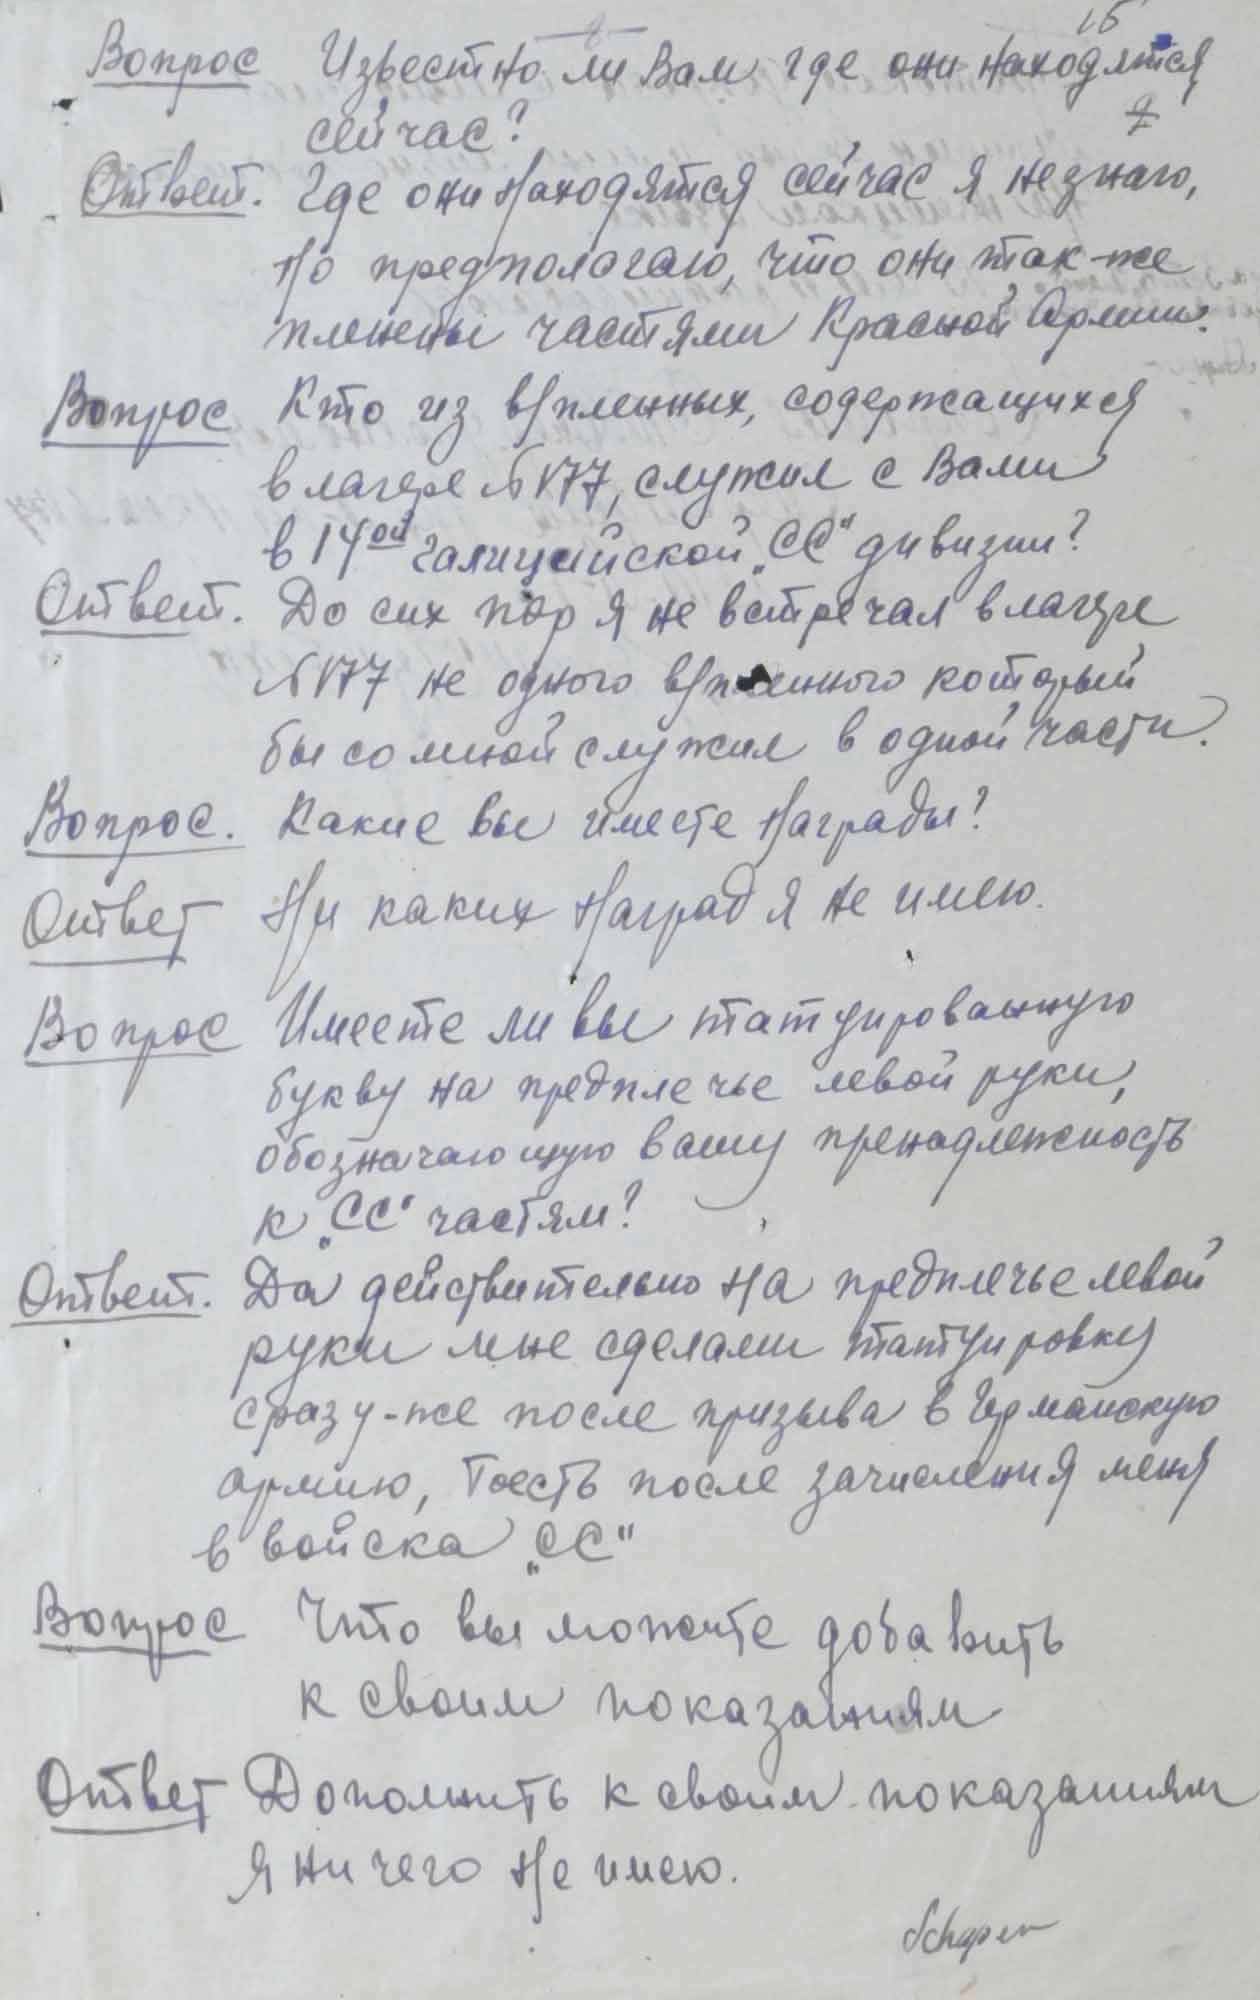 15
Вопрос Известно ли Вам где они находятся
сейчас?
Ответ. Где они находятся сейчас я не знаю,
но предполагаю, что они так-же
пленены частями Красной Армии.
Вопрос Кто из в/пленных, содержащихся
в лагере №177, служил с Вами
в 14ой Галицийской „СС" дивизии?
Ответ. До сих пор я не встречал в лагере
№177 не одного в/пленного который
бы со мной служил в одной части.
Вопрос. Какие вы имеете награды?
Ответ Ни каких наград я не имею.
Вопрос Имеете ли вы татуированную
букву на предплечье левой руки,
обозначающую вашу пренадлежность
к „СС" частям?
Ответ. Да действительно на предплечье левой
руки мне сделали татуировку
сразу-же после призыва в Германскую
армию, тоесть после зачисления меня
в войска „СС"
Вопрос Что вы можете добавить
к своим показаниям
Ответ Дополнить к своим показаниям
я ни чего не имею.